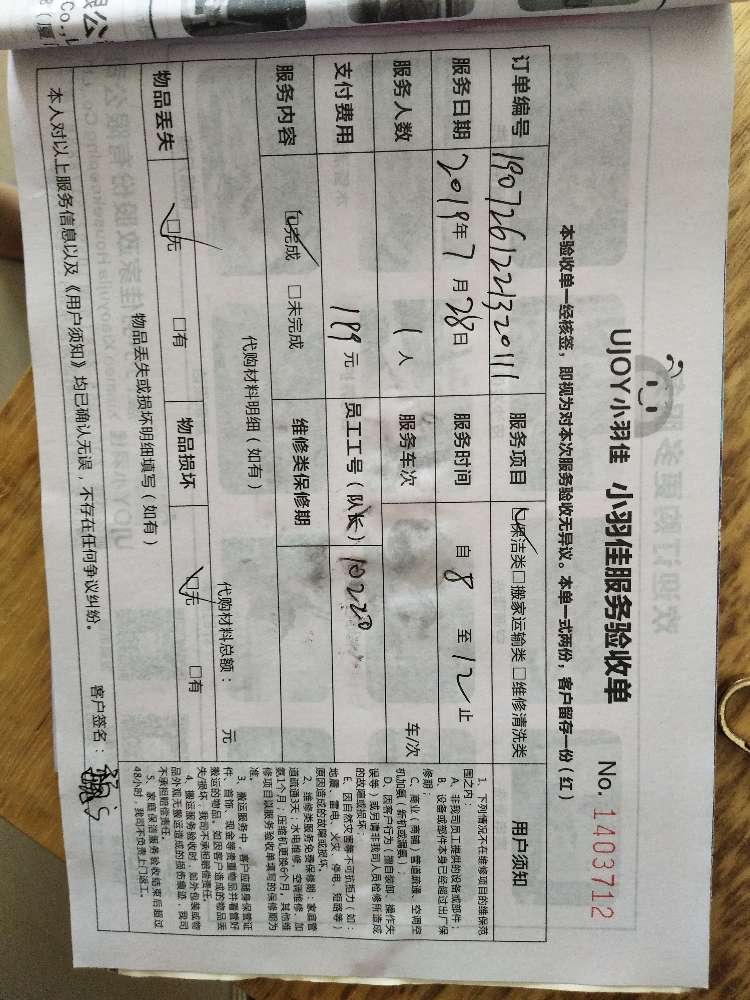 UJOY小羽佳 小羽佳服务验收单
No. 1403712
本验收单一经核签，即视为对本次服务验收无异议。本单一式两份，客户留存一份（红）
订单编号 服务项目 ☑保洁类□搬家运输类 □维修清洗类
服务日期 2019年7月28日 服务时间 自 8 至 12 止
服务人数 1 人 服务车次 车/次
支付费用 199 元 员工工号（队长） 10220
服务内容 ☑完成 □未完成 维修类保修期
代购材料明细（如有）
代购材料总额： 元
物品丢失 ☑无 □有 物品损坏 ☑无 □有
物品丢失或损坏明细填写（如有）
本人对以上服务信息以及《用户须知》均已确认无误，不存在任何争议纠纷。
客户签名：
用户须知
1、下列情况不在维修项目的维保范
围之内：
A、非我司员工提供的设备或部件；
B、设备或部件本身已经超过出厂保
修期；
C、商业（商铺）管道疏通、空调空
机加氨（新机或漏氨）；
D、因客户行为（擅自装卸、操作失
误等）或另请非我司人员检修所造成
的故障或损坏；
E、因自然灾害等不可抗拒力（如：
地震、雷电、火灾、停电、短路等）
原因造成的故障或损坏。
2、维修类服务免费保修期：家庭管
道疏通3天；水电维修、空调维修、加
氨1个月；压缩机更换6个月，其他维
修项目以服务验收单填写的保修期为
准。
3、搬运服务中，客户应随身保管证
件、首饰、现金等贵重物品并看管好
搬运的物品。如因客户造成的物品丢
失/损坏，我司不承担赔偿责任。
4、搬运服务验收时，如外包装或物
品外观无搬运造成的损伤痕迹，我司
不承担赔偿责任。
5、家庭保洁服务验收结束后超过
48小时，我司不负责上门返工。